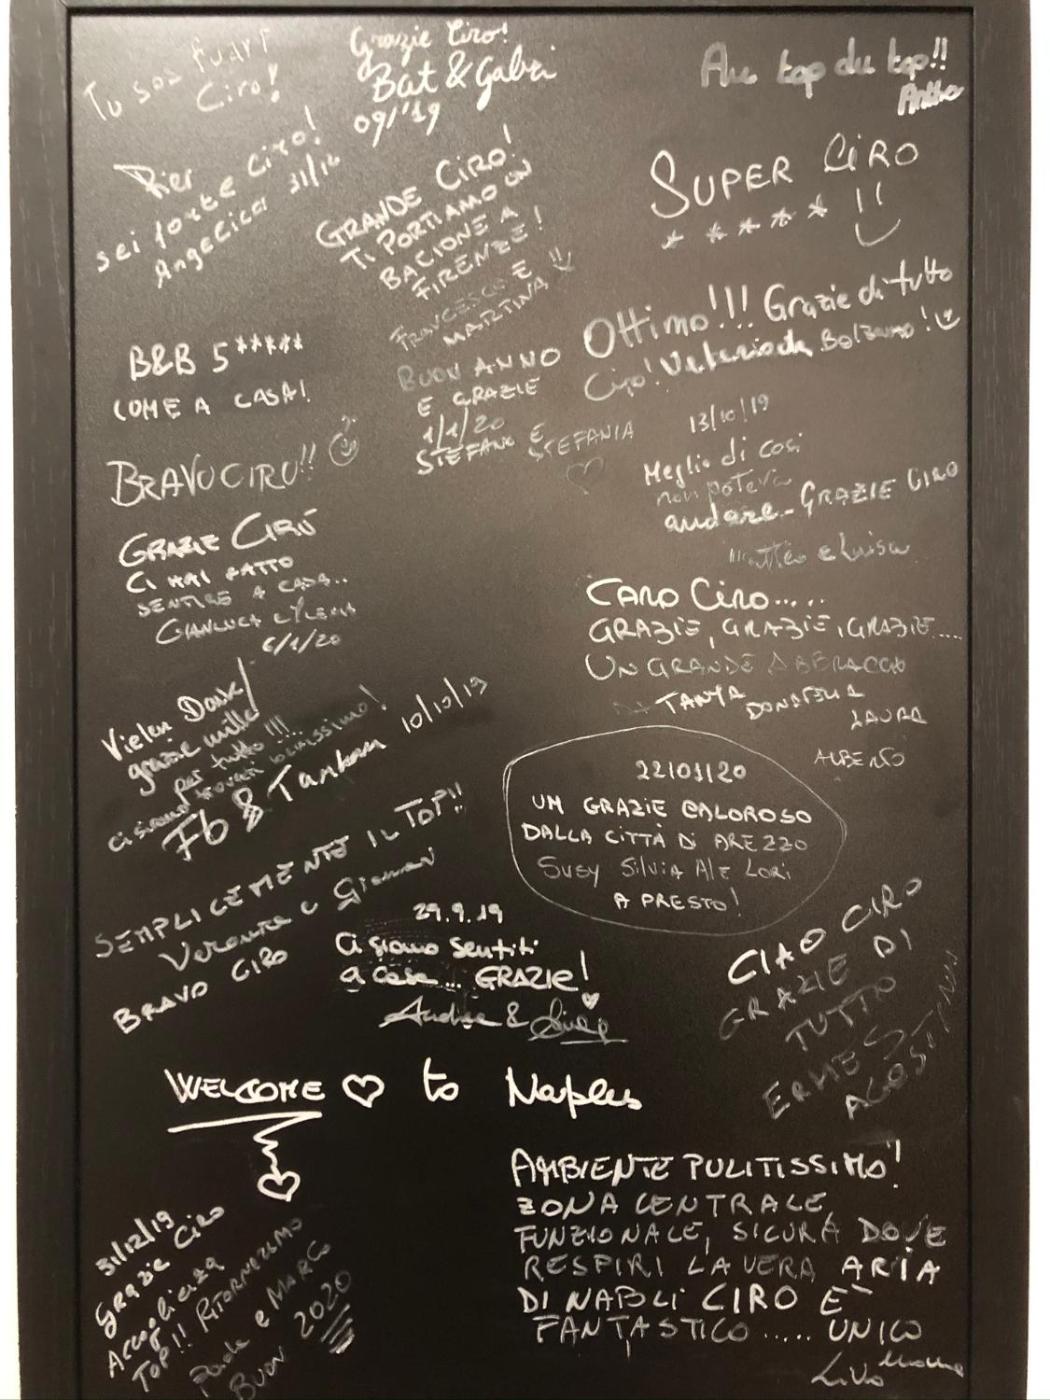 Tu sos fuart
Ciro!
Grazie Ciro!
Bat & Gabri
09/'19
Au top du top!!
Pier
sei forte Ciro!
Angelica 31/12
GRANDE CIRO!
TI PORTIAMO UN
BACIONE A
FIRENZE!
FRANCESCO E
MARTINA
SUPER CIRO
***** !!
B&B 5*****
COME A CASA!
Ottimo!!! Grazie di tutto
Ciro! Valeria da Bolzano!
BUON ANNO
E GRAZIE
1/1/20
STEFANO E
STEFANIA
13/10/19
Meglio di così
non poteva
andare... GRAZIE CIRO
Matteo e Luisa
BRAVO CIRO!!
GRAZIE CIRO
CI HAI FATTO
SENTIRE A CASA..
GIANLUCA
6/1/20
CARO CIRO.....
GRAZIE, GRAZIE, GRAZIE....
UN GRANDE ABBRACCIO
DA TANIA
DONATELLA
LAURA
ALBERTO
Vielen Dank!
grazie mille
per tutto!!!
ci siamo trovati benissimo!
10/10/19
22/01/20
UN GRAZIE CALOROSO
DALLA CITTÀ DI AREZZO
Susy Silvia Ale Lori
A PRESTO!
SEMPLICEMENTE IL TOP!!
BRAVO CIRO
29.9.19
Ci siamo sentiti
a casa... GRAZIE!
CIAO CIRO
GRAZIE DI
TUTTO
ERMES
AGOSTINI
WELCOME to Naples
AMBIENTE PULITISSIMO!
ZONA CENTRALE,
FUNZIONALE, SICURA DOVE
RESPIRI LA VERA ARIA
DI NAPOLI CIRO E'
FANTASTICO..... UNICO
31/12/19
Grazie Ciro
Accoglienza
TOP!! RITORNEREMO
Paola e MARCO
BUON 2020